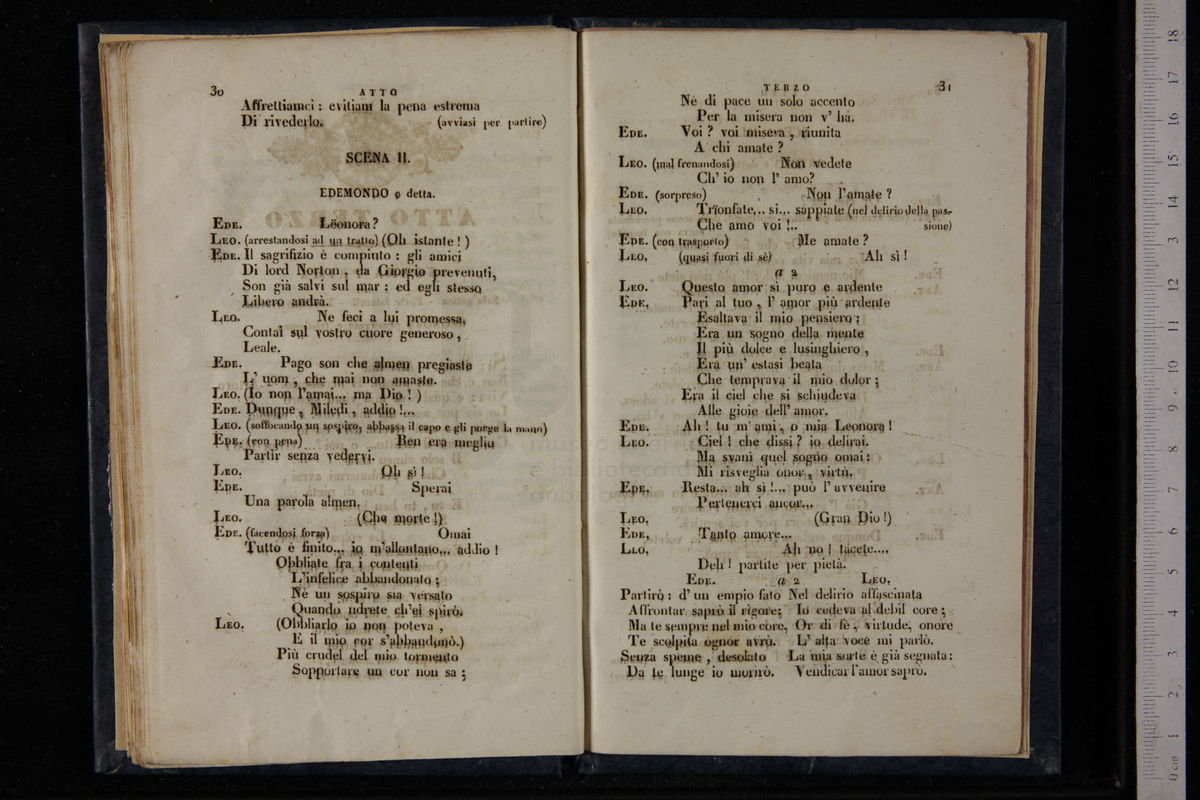 30
ATTO
Affrettiamci : evitiam la pena estrema
Di rivederlo. (avviasi per partire)
SCENA II.
EDEMONDO e detta.
EDE. Lëonora?
LEO. (arrestandosi ad un tratto) (Oh istante ! )
EDE. Il sagrifizio è compiuto : gli amici
Di lord Norton , da Giorgio prevenuti,
Son già salvi sul mar : ed egli stesso
Libero andrà.
LEO. Ne feci a lui promessa,
Contai sul vostro cuore generoso ,
Leale.
EDE. Pago son che almen pregiaste
L' uom , che mai non amaste.
LEO. (Io non l'amai... ma Dio ! )
EDE. Dunque , Miledi , addio !...
LEO. (soffocando un sospiro, abbassa il capo e gli porge la mano)
EDE. (con pena) Ben era meglio
Partir senza vedervi.
LEO. Oh sì !
EDE. Sperai
Una parola almen.
LEO. (Che morte !)
EDE. (facendosi forza) Omai
Tutto è finito... io m'allontano... addio !
Obbliate fra i contenti
L'infelice abbandonato ;
Nè un sospiro sia versato
Quando udrete ch'ei spirò.
LEO. (Obbliarlo io non poteva ,
E il mio cor s'abbandonò.)
Più crudel del mio tormento
Sopportare un cor non sa ;
TERZO
31
Nè di pace un solo accento
Per la misera non v' ha.
EDE. Voi ? voi misera , riunita
A chi amate ?
LEO. (mal frenandosi) Non vedete
Ch' io non l' amo?
EDE. (sorpreso) Non l'amate ?
LEO. Trïonfate... si... sappiate (nel delirio della pas-
Che amo voi !.. sione)
EDE. (con trasporto) Me amate ?
LEO. (quasi fuori di sè) Ah sì !
a 2
LEO. Questo amor sì puro e ardente
EDE. Pari al tuo , l' amor più ardente
Esaltava il mio pensiero ;
Era un sogno della mente
Il più dolce e lusinghiero ,
Era un' estasi beata
Che temprava il mio dolor ;
Era il ciel che si schiudeva
Alle gioie dell' amor.
EDE. Ah ! tu m' ami , o mia Leonora !
LEO. Ciel ! che dissi ? io delirai.
Ma svanì quel sogno omai :
Mi risveglia onor , virtù.
EDE. Resta... ah sì !... può l' avvenire
Pertenerci ancor...
LEO. (Gran Dio !)
EDE. Tanto amore...
LEO. Ah no ! tacete....
Deh ! partite per pietà.
EDE. a 2 LEO.
Partirò : d' un empio fato Nel delirio affascinata
Affrontar saprò il rigore; Io cedeva al debil core ;
Ma te sempre nel mio core, Or di fè , virtude, onore
Te scolpita ognor avrò. L' alta voce mi parlò.
Senza speme , desolato La mia sorte è già segnata :
Da te lunge io morirò. Vendicar l'amor saprò.